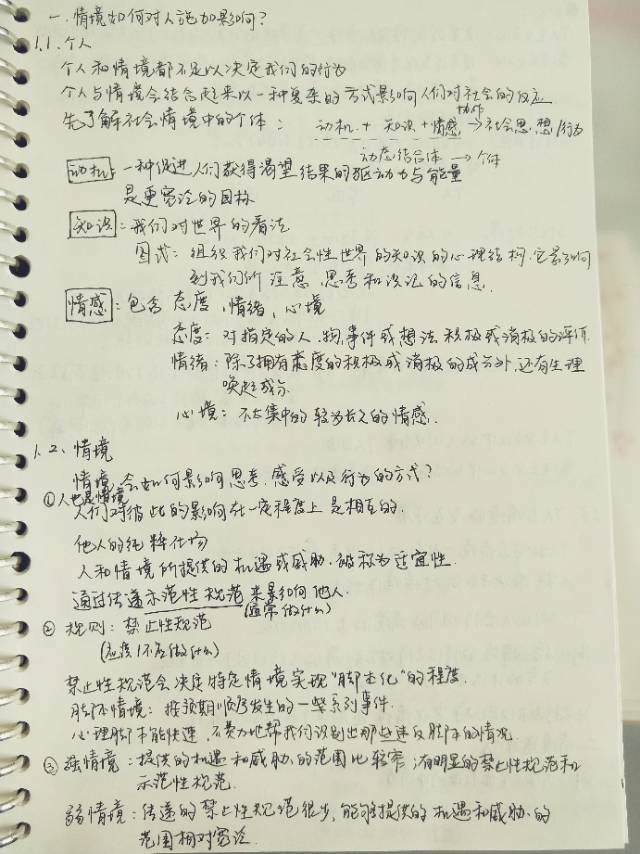 一.情境如何对人施加影响?
1.1.个人
个人和情境都不足以决定我们的行为
个人与情境会结合起来以一种复杂的方式影响人们对社会的反应
先了解社会情境中的个体: 动机 + 知识 + 情感 协作→ 社会思想/行为
动态结合体 → 个体
动机: 一种促进人们获得渴望结果的驱动力与能量
是更宽泛的目标
知识: 我们对世界的看法
图式: 组织我们对社会性世界的知识的心理结构,它影响
到我们所注意、思考和识记的信息.
情感: 包含态度,情绪,心境
态度: 对指定的人.物.事件或想法积极或消极的评价
情绪: 除了拥有态度的积极或消极的成分外,还有生理
唤起成分
心境: 不太集中的较为长久的情感.
1.2.情境
情境会如何影响思考.感受以及行为的方式?
①人也是情境
人们对彼此的影响在一定程度上是相互的.
他人的纯粹在场
人和情境所提供的机遇或威胁.被称为适宜性.
通过传递示范性规范来影响他人.
(通常做什么)
② 规则: 禁止性规范
(应该/不应做什么)
禁止性规范会决定特定情境实现"脚本化"的程度.
脚本情境: 按预期顺序发生的一些系列事件.
心理脚本能快速、不费力地帮我们识别出那些违反脚本的情况
③ 强情境: 提供的机遇和威胁的范围比较窄,有明显的禁止性规范和
示范性规范.
弱情境: 传递的禁止性规范很少,能够提供的机遇和威胁的
范围相对宽泛.